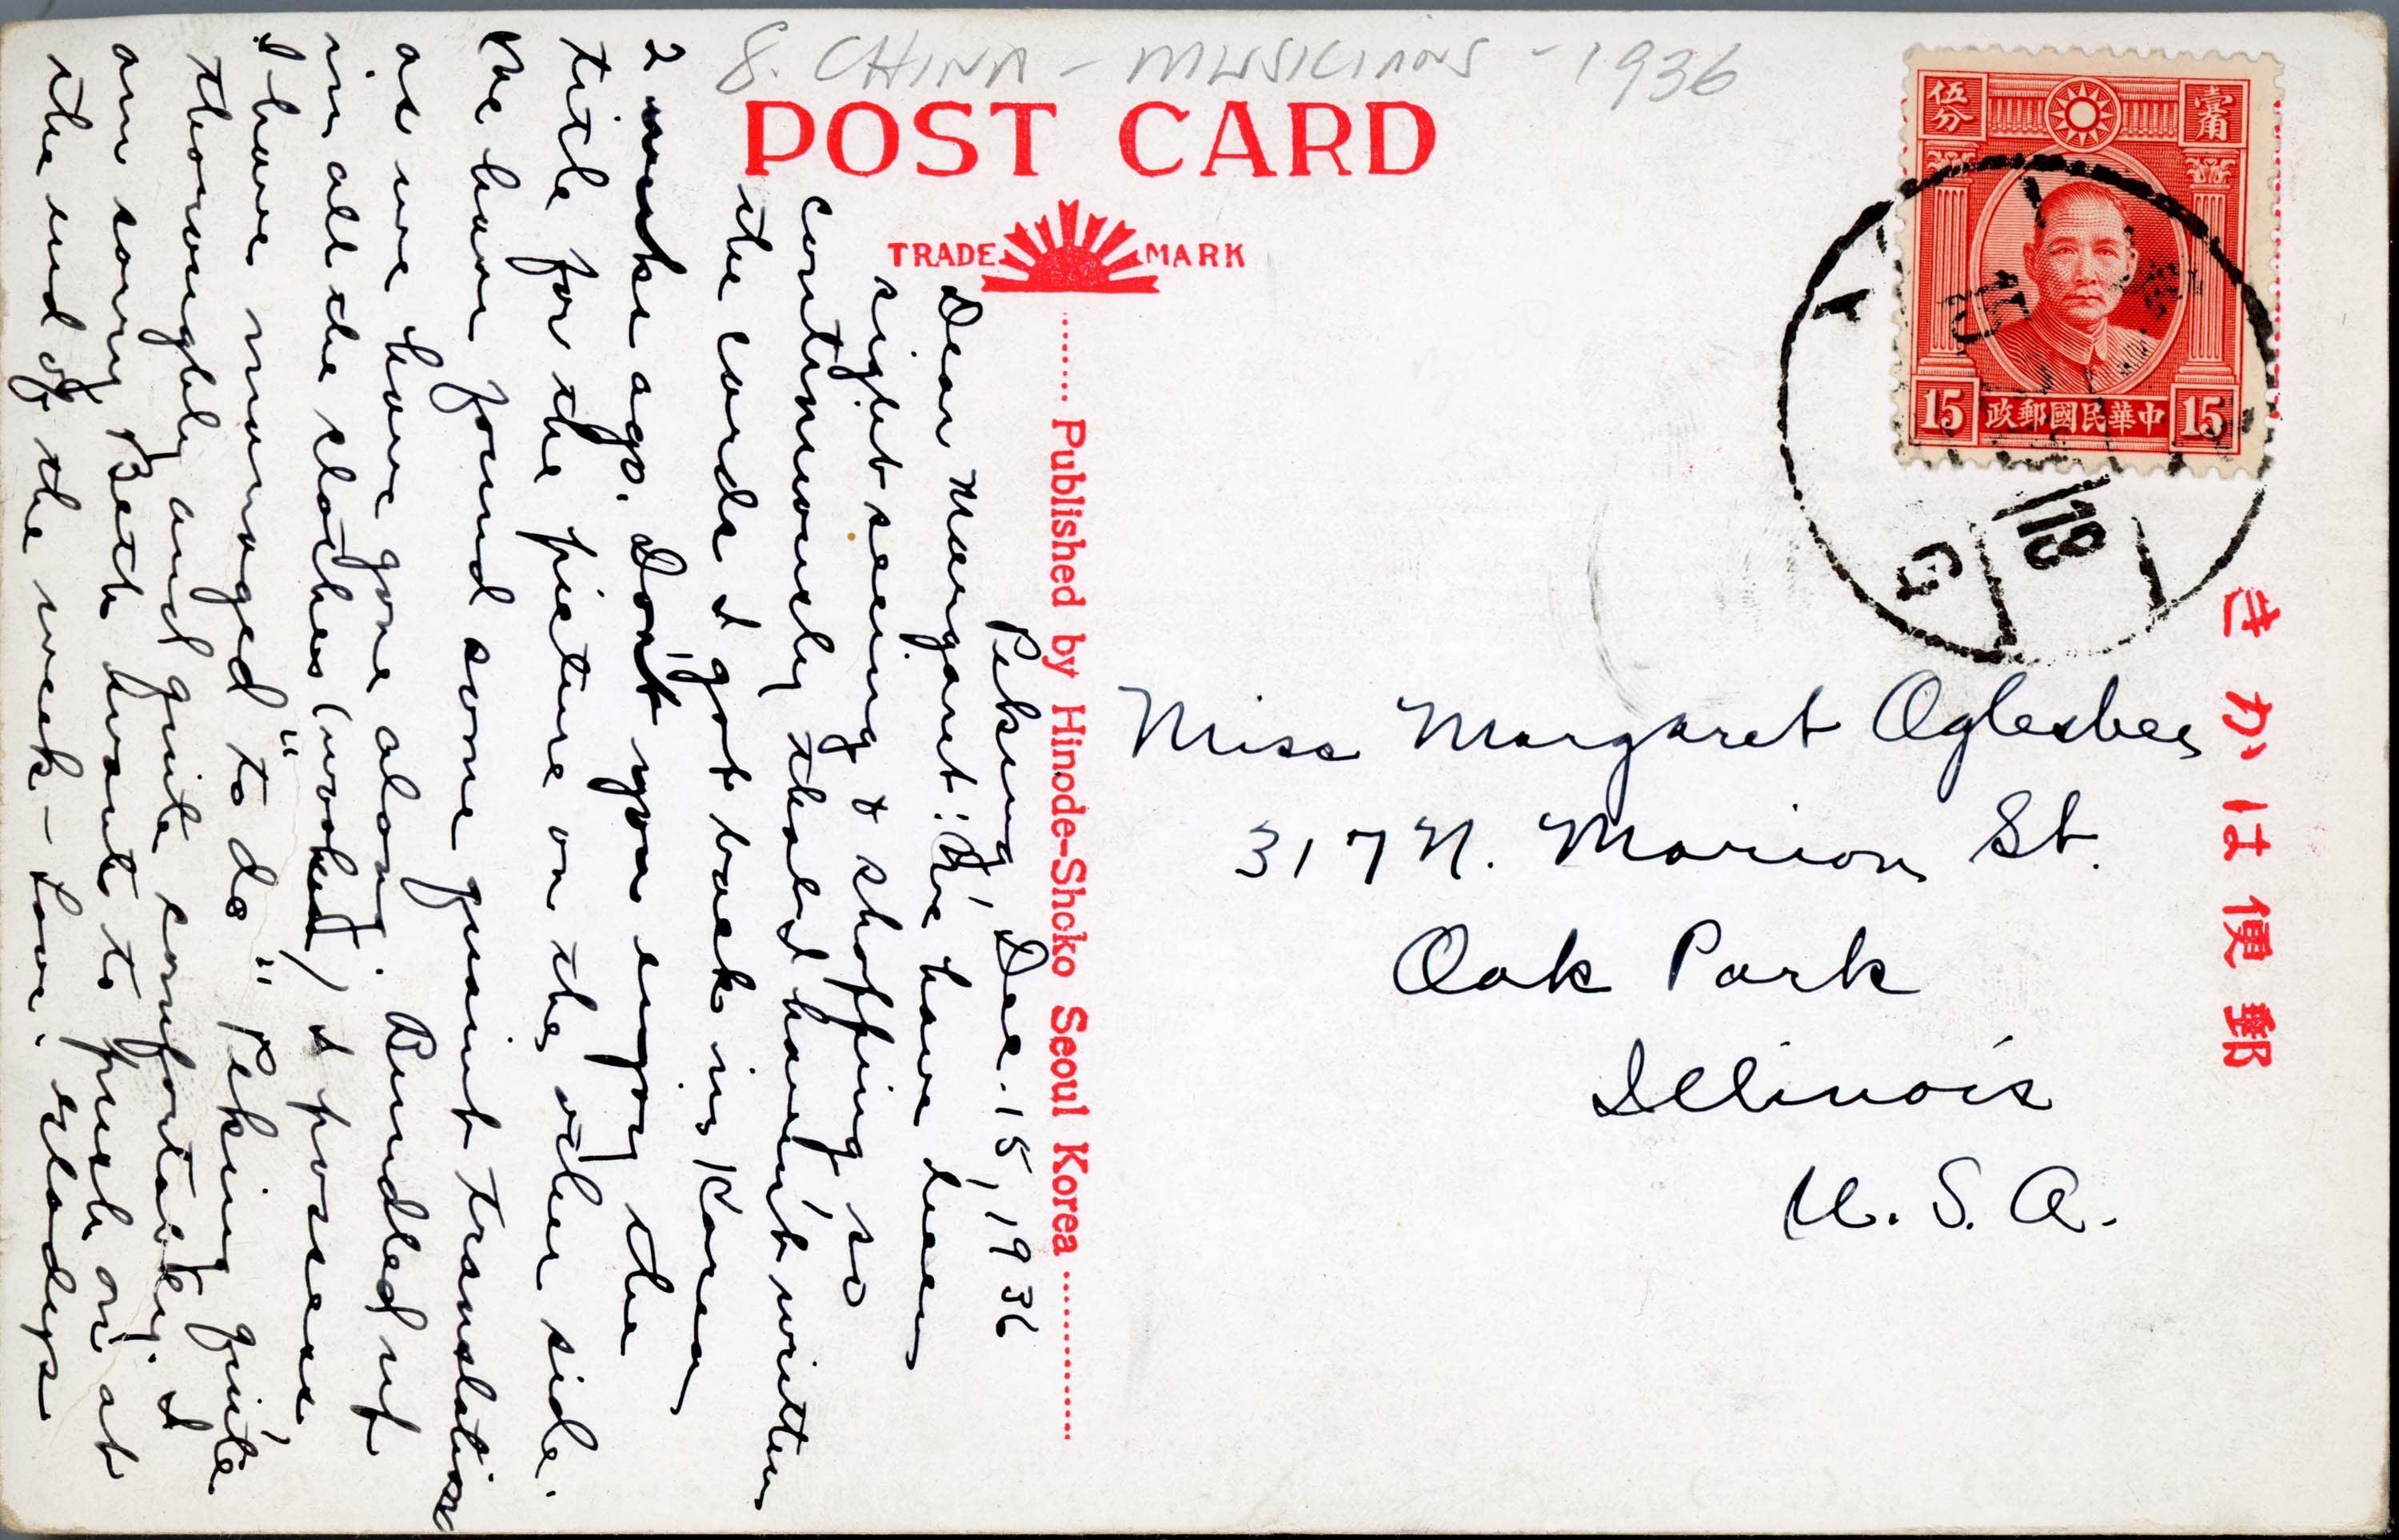 8. CHINA - MUSICIANS - 1936
POST CARD
TRADE MARK
Peking, Dec. 15, 1936
Dear Margaret: We have been
sight seeing & shopping so
continuously that I haven't written
the cards I got back in Korea
2 weeks ago. Don't you enjoy the
title for the picture on the other side.
We have found some quaint translation
as we have gone along. Bundled up
in all the clothes (wooled) I possess
I have managed "to do" Peking quite
thoroughly and quite comfortably. I
am sorry Beth wants to push on at
the end of the week - Love.
........ Published by Hinode-Shoko Seoul Korea ............
伍分
壹角
15
政郵國民華中
15
18
G
Miss Margaret Oglesbee
317 N. Marion St.
Oak Park
Illinois
U. S. A.
きかは便郵